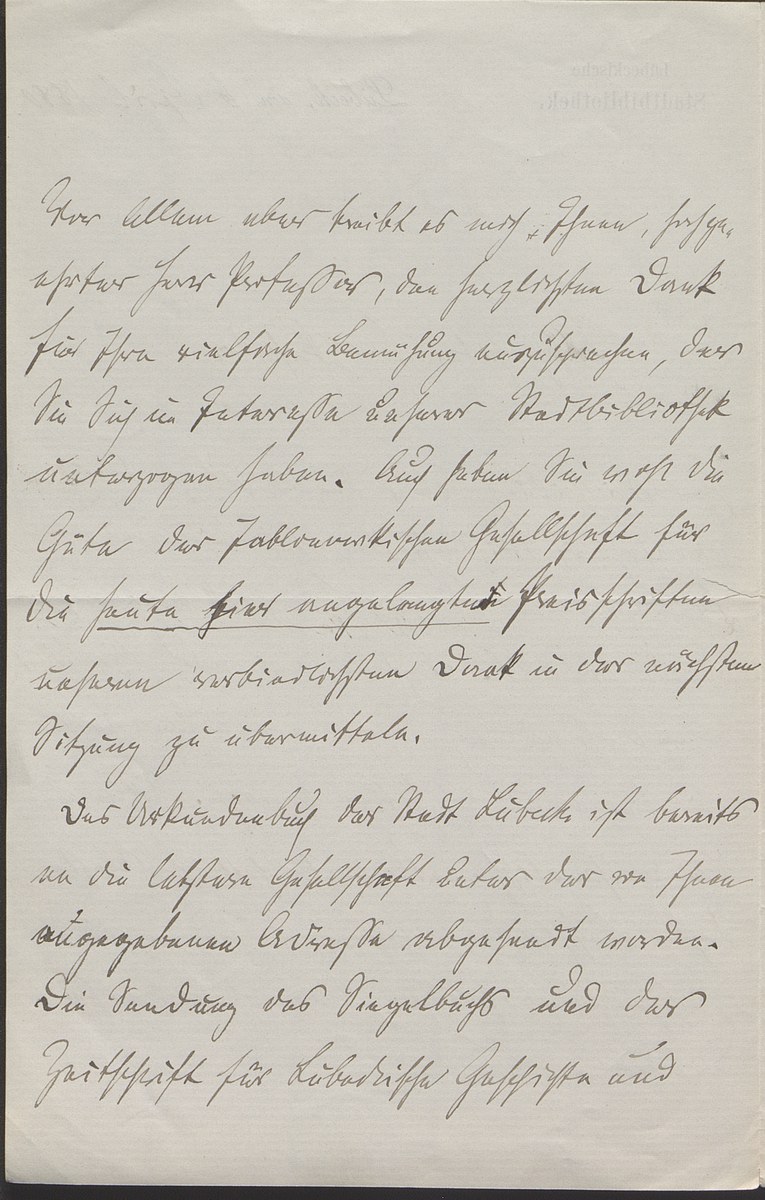 Vor Allem aber treibt es mich, Ihnen, hochge-
ehrter Herr Professor, den herzlichsten Dank
für Ihre vielfache Bemühung auszusprechen, der
Sie Sich im Interesse unserer Stadtbibliothek
unterzogen haben. Auch haben Sie wohl die
Güte der Jablonowskischen Gesellschaft für
die heute hier angelangten Preisschriften
unseren verbindlichsten Dank in der nächsten
Sitzung zu übermitteln.
Das Urkundenbuch der Stadt Lübeck ist bereits
an die letztere Gesellschaft unter der von Ihnen
angegebenen Adresse abgesandt worden.
Die Sendung des Siegelbuchs und der
Zeitschrift für Lübeckische Geschichte und